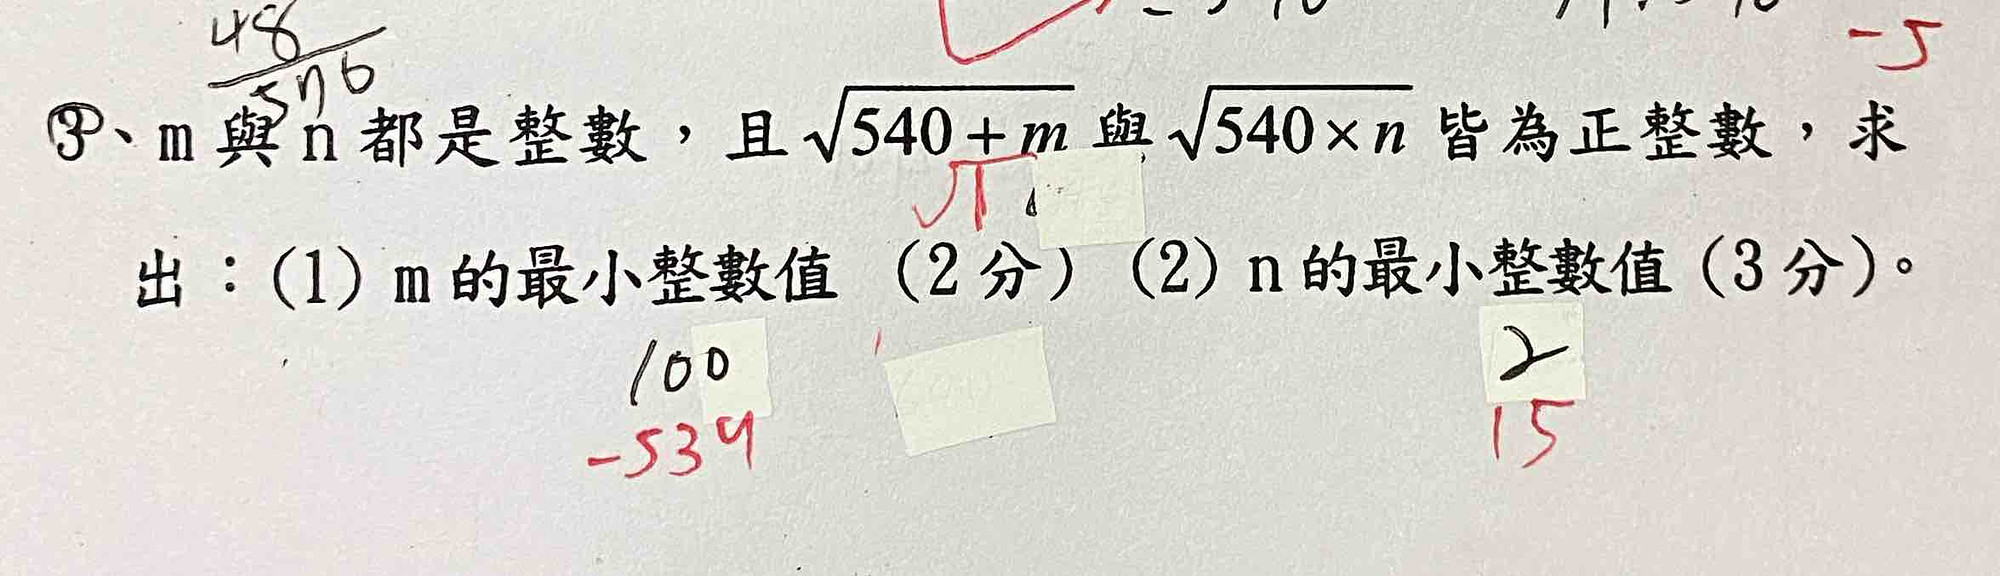 48
576
-5
3、m 與 n 都是整數，且 √540+m 與 √540×n 皆為正整數，求
√1
出：(1) m 的最小整數值 （2 分）(2) n 的最小整數值（3 分）。
100 2
-539 15